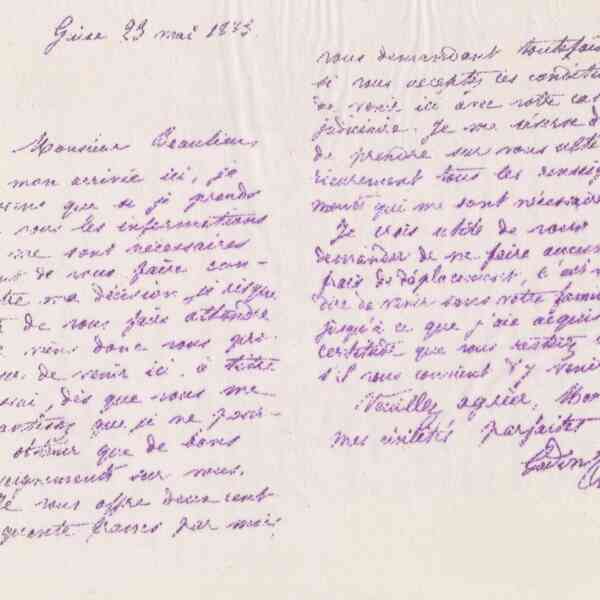 Guise 23 mai 1873.
Monsieur Beaulieu,
mon arrivée ici, j'ai
que si je prends
vous les informations
me sont nécessaires
de vous faire con-
ma décision, je risque
de vous faire attendre
viens donc vous pri-
de venir ici à titre
dès que vous me
que je ne pour-
obtenir que de bons
sur vous.
Je vous offre deux cent
francs par mois,
vous demandant toutefois
si vous acceptez ces conditions
de venir ici avec votre cas
judiciaire. Je me réserve d
de prendre sur vous ulté
rieurement tous les renseig
ments qui me sont nécessaire
Je crois utile de vous
demander de ne faire aucun
frais de déplacement, c'est à
dire de venir sans votre famil
jusqu'à ce que j'aie acquis
certitude que vous resterez
s'il vous convient d'y veni
Veuillez agréer, Mon
mes civilités parfaites
Godin